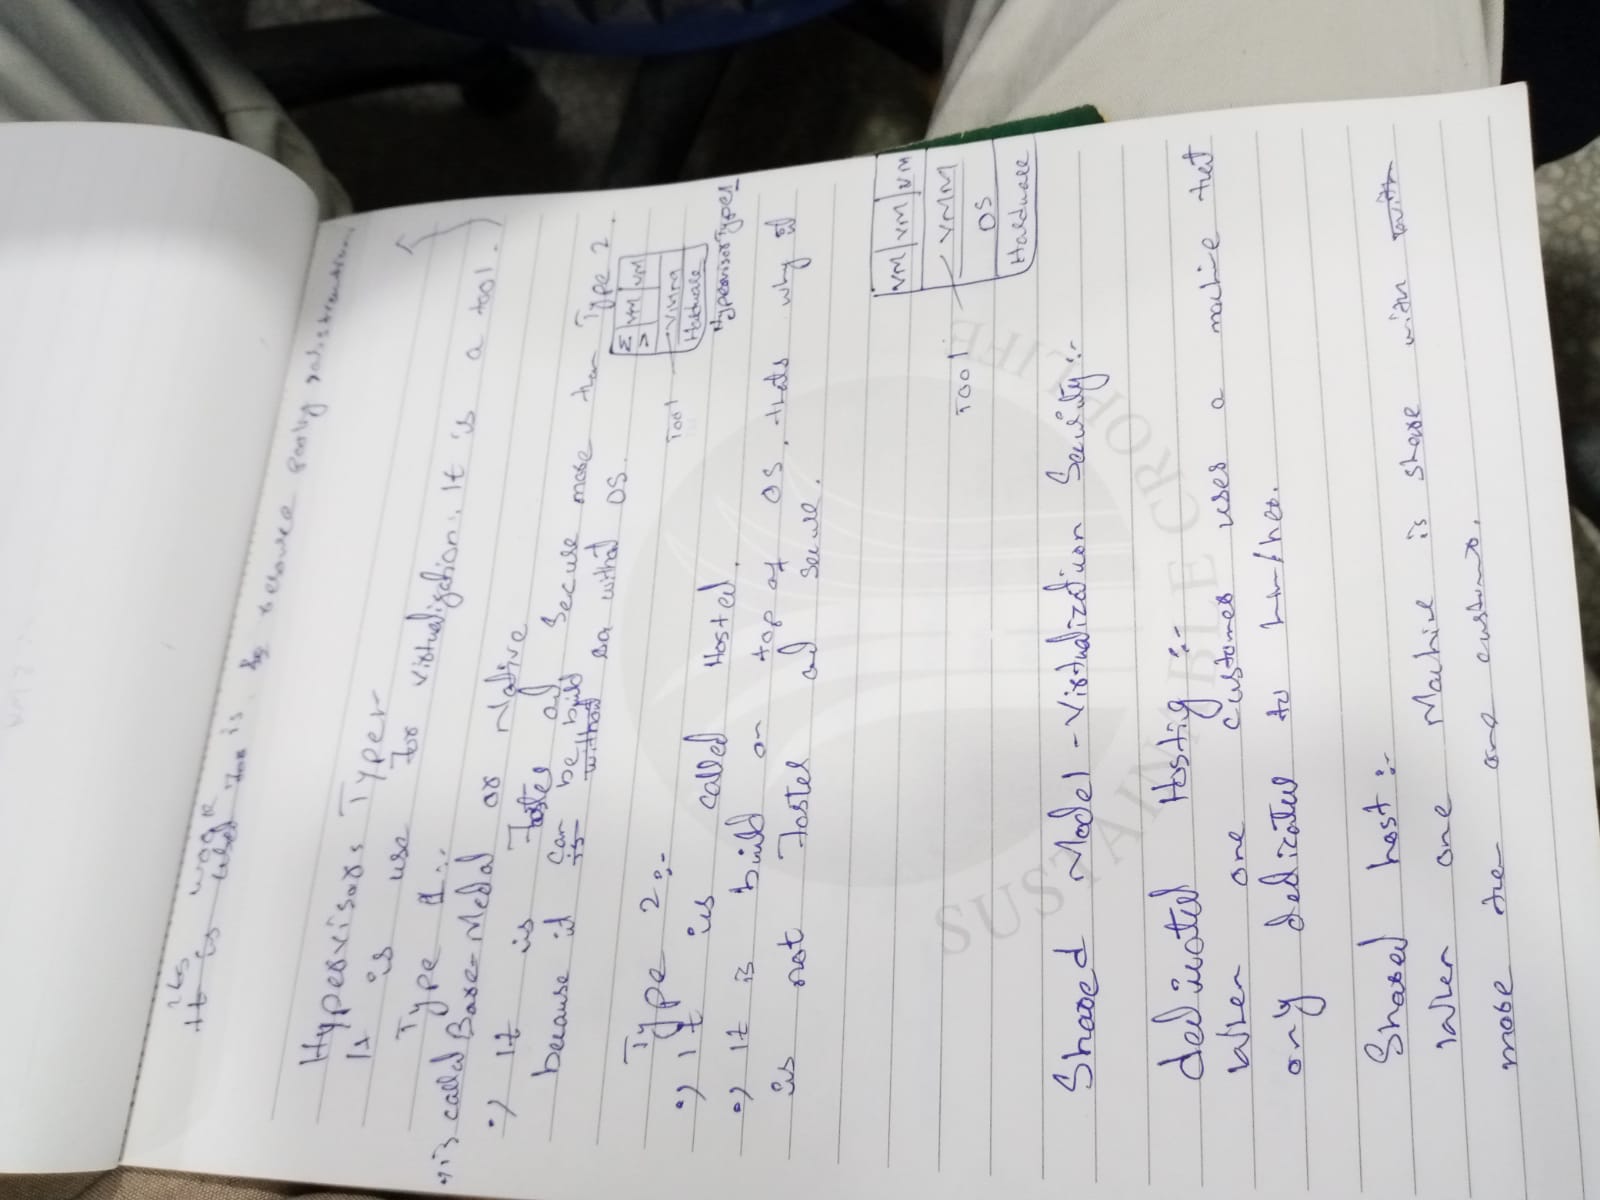 its
It is
used for is.
Hypervisors Types
Is is use for virtualization. It is a tool.)
Type 1:-
is called Bare-Medal or Native
•) It is faster and Secuse more than Type 2.
because it can be build
is without
without OS.
VM VM VM
VMM
Hardware
Tool
Hypervisor Type 1
Type 2:-
•) It is called Hosted.
•) It is build on top of OS, thats why it
is not faster and secure.
VM VM VM
VMM
OS
Hardware
Tool
Shared Model - Virtualization Security:-
dedicated Hosting:-
When one customer uses a machine that
only dedicated to him/her.
Shared host:-
When one Machine is share with with
more then one customer.
SUSTAINABLE CROP LIFE